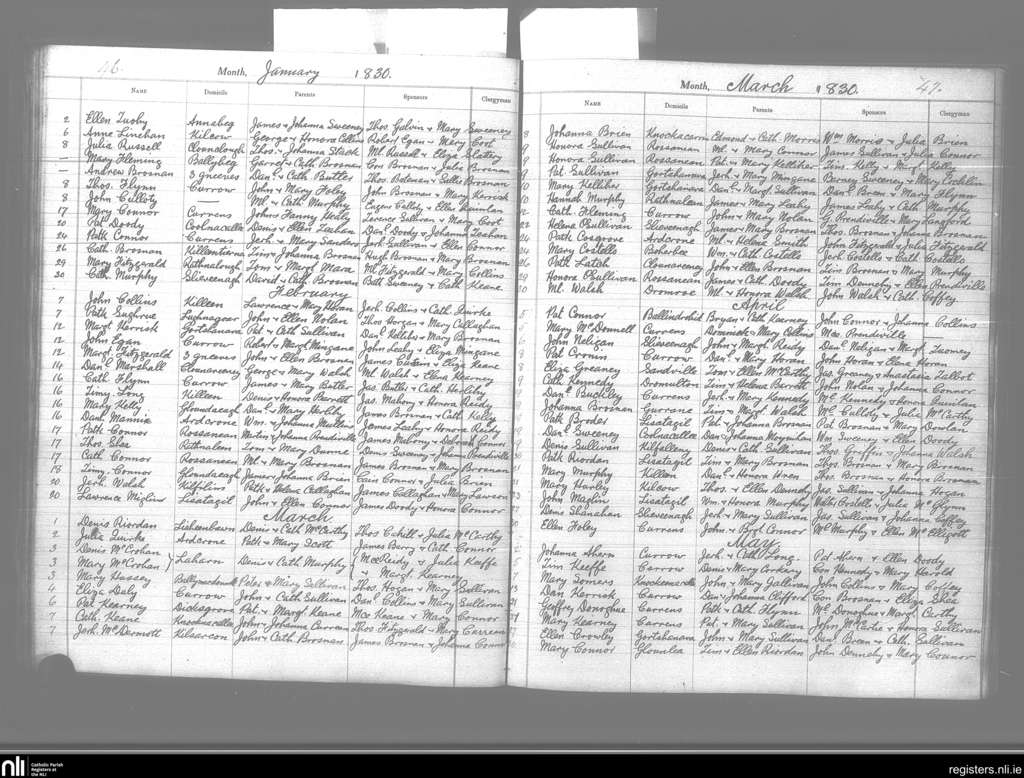 46.
Month, January 1830.
Name Domicile Parents Sponsors Clergyman
2 Ellen Annabeg James & Johanna Sweeney Thos. Galvin & Mary Sweeney
6 Anne Linehan Kilcow George & Honora Collins Robert Egan & Mary Cort
8 Julia Russell Clounalough Thos. & Johanna Stack Ml. Russell & Eliza Slattery
— Mary Fleming Ballybeg Garret & Cath Brosnan Con Brosnan & Julia Brosnan
— Andrew Brosnan 3 Gneeves Dan. & Cath Butler Thos. Bateman & Brosnan
8 Thos. Flynn Currow John & Mary Foley John Brosnan & Mary Kerrick
8 John Culloty — Ml. & Cath Murphy Eugene Culloty & Ellen Quinlan
17 Mary Connor Currens John & Fanny Healy Lorence Sullivan & Mary Cort
20 Pat Doody Coolnacalla Denis & Ellen Leahan Dan. Doody & Johanna Leahan
24 Patk Connor Currens Jerh. & Mary Sanders Jerh Sullivan & Ellen Connor
26 Cath. Brosnan Killeentierna Tim & Johanna Brosnan Hugh Brosnan & Mary Brosnan
29 Mary Fitzgerald Rathnalough Tom & Margt Mara Ml Fitzgerald & Mary Collins
30 Cath Murphy Slieveenagh David & Cath Brosnan Batt Sweeney & Cath Keane
February
7 John Collins Killeen Lawrence & Mary Horan Jerh Collins & Cath Quirke
7 Patk Sughrue John & Ellen Nolan Thos Horgan & Mary Callaghan
12 Margt Kerrick Gortahenava Pat & Cath Sullivan Dan. Kelliher & Mary Brosnan
12 John Egan Currow Robert & Margt Mungane John Leahy & Eliza Mungane
12 Margt Fitzgerald 3 Gneeves John & Ellen Brosney James & Eliza Keane
14 Danl Marshall Clounareney George & Mary Walsh Ml Walsh & Elena Kearney
16 Cath Flynn Currow James & Mary Butler Jas. Butler & Cath Herlihy
16 Timy. Long Killeen Denis & Honora Barnett Jas. Mahony & Honora Reidy
16 Mary Kelly Glounacagh Danl & Mary Herlihy James Brosnan & Cath Kelly
16 Danl Mannix Ardcrone Wm. & Johanna Mullane James Leahy & Honora Reidy
17 Patk Connor Rossanean & Johanna Prendiville James Mahony & Deborah Connor
17 Thos. Shea Rathnalem Tom & Mary Dunne Denis Sweeney & Johanna Prendiville
17 Cath. Connor Rossanean Ml. & Mary Brosnan James Brosnan & Mary Brosnan
13 Timy. Connor Glounacagh James & Johanna Brien Cain Connor & Julia Brien
20 Jerh. Walsh Kilfelim Patk & Helena Callaghan James Callaghan & Mary Lawson
20 Lawrence Lisatagil John & Ellen Connor James Doody & Honora Connor
March
1 Denis Riordan Denis & Cath McCarthy Thos Cahill & Julia McCarthy
2 Julia Quirke Ardcrone Patk & Mary Scott James Barry & Cath Connor
3 Denis McCrohan
3 Mary McCrohan } Laharn Denis & Cath Murphy { Reidy & Julia Keeffe
Margt. Kearney
3 Mary Hassey Peter & Mary Sullivan Thos. Hogan & Mary Sullivan
4 Eliza Daly Currow John & Cath Sullivan Dan. Collins & Mary Sullivan
6 Pat Kearney Dicksgrove Pat. & Margt Keane Keane & Mary Connor
7 Cath. Keane John & Johanna Curreen Thos Fitzgerald & Mary Curreen
7 Jerh. McDermott Kilsarcon John & Cath Brosnan James Brosnan & Johanna Connor
47.
Month, March 1830.
Name Domicile Parents Sponsors Clergyman
8 Johanna Brien Knockacarn Edmond & Cath Morris Wm Morris & Julia Brien
9 Honora Sullivan Rossanean Ml. & Mary Connor James Sullivan & Julia Connor
9 Honora Sullivan Rossanean Pat. & Mary Kelliher Tim Kelly & Margt. Kelly
9 Pat Sullivan Gortahenava Jerh & Mary Mungane Barney Sweeney & Mary
10 Mary Kelliher Gortahenava Danl & Margt Sullivan Danl. Breen & Mary Flynn
10 Hannah Murphy Rathnalem James & Mary Leahy James Leahy & Cath Murphy
12 Cath Fleming Currow John & Mary Nolan G. Prendiville & Mary
22 Helena OSullivan Slieveenagh James & Mary Brosnan Thos. Brosnan & Johanna Brosnan
24 Patk Cosgrove Ardcrone Ml. & Helena Smith John Fitzgerald & Julia Fitzgerald
24 Mary Costello Boherbee Wm. & Cath Costello Jerh. Costello & Cath Costello
26 Patk Clounareney John & Ellen Brosnan Tim Brosnan & Mary Murphy
29 Honora OSullivan Rossanean James & Cath Doody Tim Dennehy & Ellen Prendiville
30 Ml. Walsh Dromroe Ml. & Honora Walsh John Walsh & Cath. Coffey
April
5 Pat Connor Ballindrohid Bryan & Cath Kearney John Connor & Johanna Collins
5 Mary McDonnell Currens Dominick & Mary Collins Prendiville
6 John Neligan Slieveenagh John & Margt Reidy Danl. Neligan & Margt. Twomey
8 Pat Cronin Currow Dan. & Mary Horan John Horan & Elena Horan
8 Eliza Greaney Sandville Tom & Ellen McCarthy Jas. Greaney & Anastasia Talbot
9 Cath Kennedy Dromulton Tim & Helena Barrett John Nolan & Johanna Connor
9 Danl. Buckley Currens Jerh. & Mary Kennedy Ml. Kennedy & Honora Quinlan
Johanna Brosnan Tim & Margt. Walsh Ml Culloty & Julia McCarthy
Patk Broder Lisatagil Pat & Johanna Brosnan Pat Brosnan & Mary Dowlan
Danl Sweeney Coolnacalla Dan & Johanna Moynihan Wm. Sweeney & Ellen Doody
Denis Sullivan Kilfalleny Denis & Cath Sullivan Thos. Griffin & Johanna Walsh
Patk Riordan Lisatagil Tim & Mary Brosnan Thos. Brosnan & Mary Brosnan
Mary Murphy Killeen Dan. & Honora Thos. Brosnan & Honora Brosnan
Mary Hurley Kilcow Thos. & Ellen Dennehy Jas. Sullivan & Johanna Hogan
John Maglin Lisatagil Wm. & Honora Murphy Walter Costello & Julia McGlynn
Denis Shanahan Slieveenagh Jerh & Mary Sullivan Jas Sullivan & Johanna Coffey
Ellen Foley Currens John & Bgt Connor Ml Murphy & Ellen McElligott
May
Johanna Ahern Currow Jerh. & Cath Long Pat Ahern & Ellen Doody
Tim Keeffe Currow Denis & Mary Corkery Con Kennedy & Mary Harold
Mary Somers John & Mary Gallivan John Collins & Mary Coffey
Dan Kerrick Currow Dan & Johanna Clifford Con Brosnan & Eliza Shea
Geffry Donoghue Currens Patk & Cath Flynn Ml Donoghue & Margt. Carthy
Mary Kearney Currens Pat. & Mary Sullivan John McCartie & Honora Sullivan
Ellen Crowley Gortahenava John & Mary Sullivan Danl Breen & Cath Sullivan
Mary Connor Glounlea Tim & Ellen Riordan John Dennehy & Mary Connor
nli Catholic Parish Registers at the NLI
registers.nli.ie